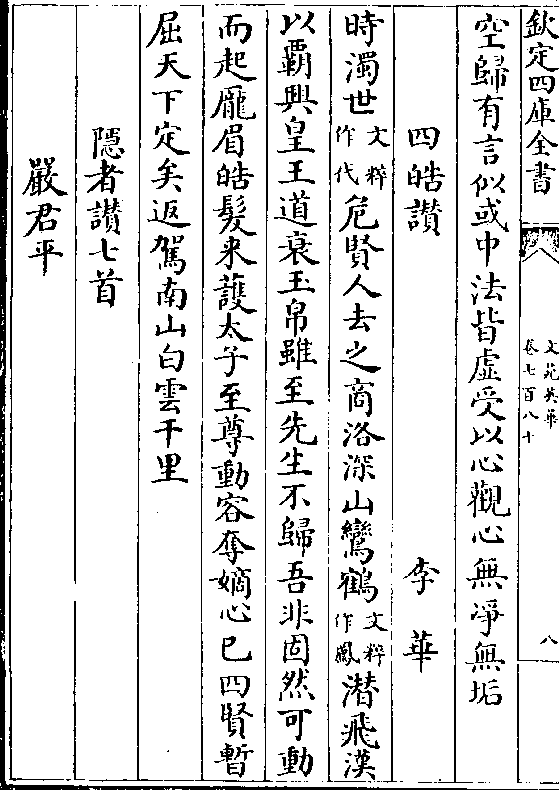 欽定四庫全書
文苑英華
卷七百八十
八
空歸有言似或中法皆虛受以心觀心無淨無垢
四皓讃 李華
時濁世文粹作代危賢人去之商洛深山鸞鶴文粹作鳳潜飛漢
以霸興皇王道衰玉帛雖至先生不歸吾非固然可動
而起厖眉皓髮来䕶太子至尊動容奪嫡心已四賢暫
屈天下定矣返駕南山白雲千里
隱者讃七首
嚴君平